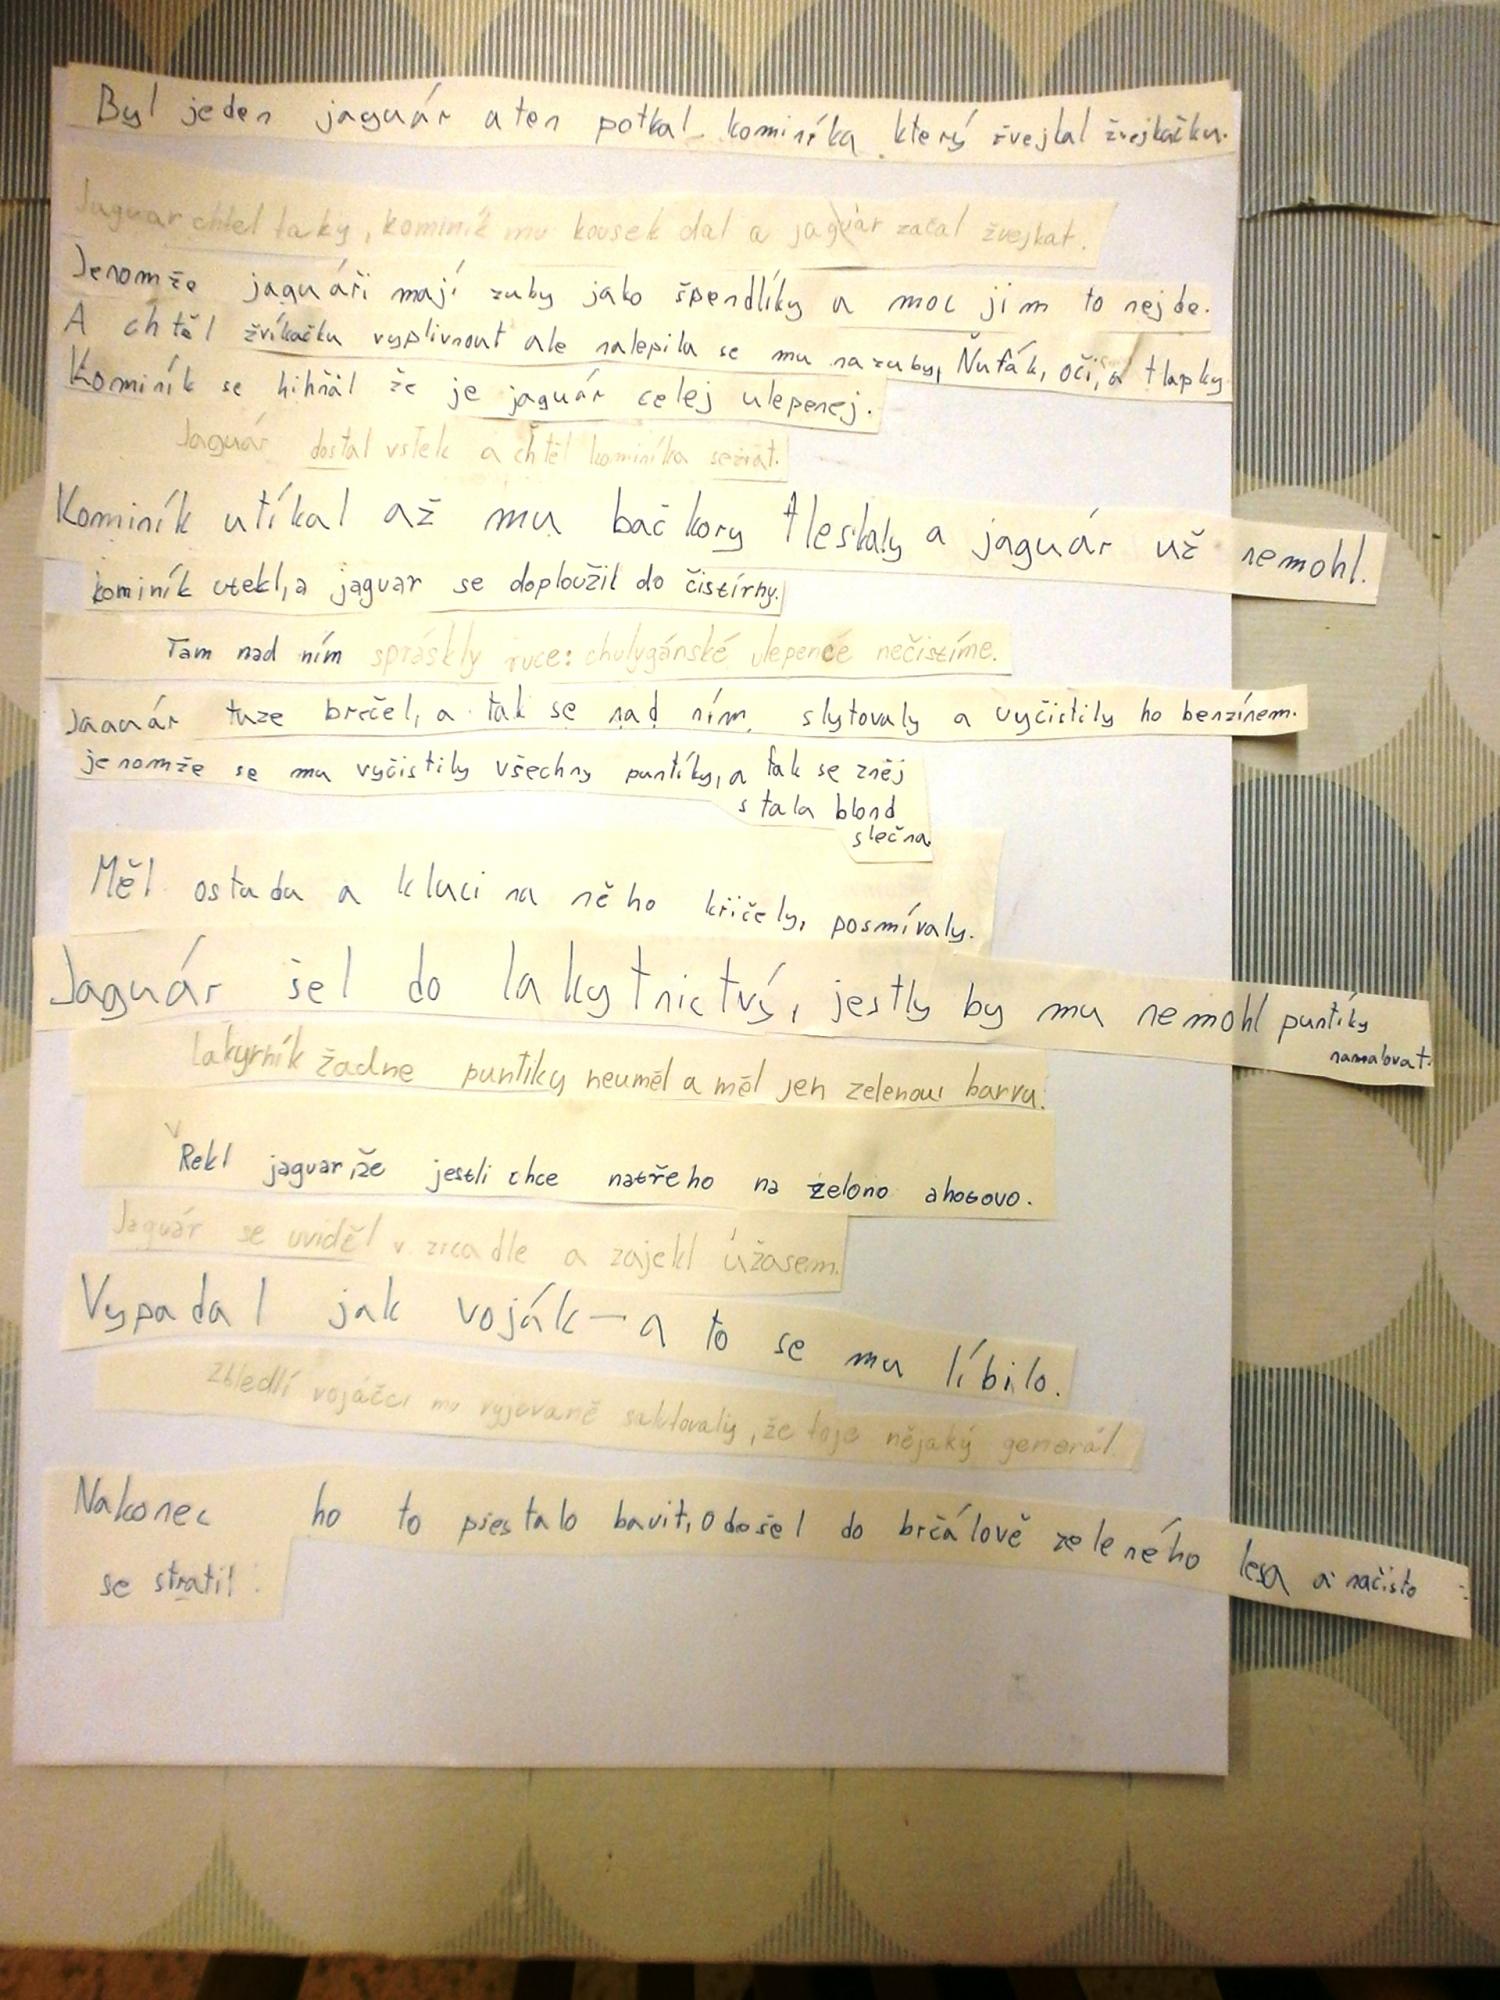 Byl jeden jaguár a ten potkal kominíka který žvejkal žvejkačku.
Jaguar chtel taky, kominík mu kousek dal a jaguár začal žvejkat.
Jenomže jaguáři mají zuby jako špendlíky a moc jim to nejde.
A chtěl žvíkačku vyplivnout ale nalepila se mu na zuby, Ňufák, oči, a tlapky
Kominík se hihňal že je jaguár celej ulepenej.
Jaguár dostal vstek a chtěl kominíka sežrat.
Kominík utíkal až mu bačkory tleskaly a jaguár už nemohl.
kominík utekl, a jaguar se doploužil do čistírny.
Tam nad ním spráskly ruce: chulygánské ulepence nečistíme.
Jaguár tuze brečel, a tak se nad ním slytovaly a vyčistily ho benzínem.
jenomže se mu vyčistily všechny puntíky, a tak se zněj
stala blond
slečna.
Měl ostudu a kluci na něho křičely, posmívaly.
Jaguár šel do lakytnictvý, jestly by mu nemohl puntíky
namalovat.
Lakyrník žadne puntiky neuměl a měl jen zelenou barvu.
Řekl jaguar, že jestli chce natřeho na zelono ahotovo.
Jaguár se uviděl v zrcadle a zajekl úžasem.
Vypadal jak voják — a to se mu líbilo.
Zbledlí vojáčci mu vyjevaně salutovaly, že toje nějaký generál.
Nakonec ho to přestalo bavit, odešel do brčálově zeleného lesa a načisto
se stratil.